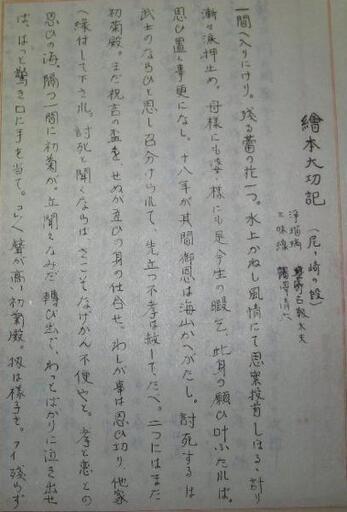 繪本大功記(尼ヶ崎の段)
浄瑠璃 豊竹古靱太夫
三味線 鶴澤清六
一間へ入りにけり。残る蕾の花一つ。水上かねし風情にて思案投首しほるゝ計り
漸々涙押止め、母様にも婆様にも是今生の暇乞、此身の願ひ叶ふたれば。
思ひ置く事更になし。十八年が其間御恩は海山かへがたし。討死するは
武士のならひと思し召分けられて、先立つ不孝は赦してたべ。二つにはまだ
初菊殿。まだ祝言の盃を、せぬが互ひの身の仕合せ、わしが事は思ひ切り、他家
へ縁付して下され。討死と聞くならばさこそなげかん不便やと。孝と恋との
思ひの海。隔つ一間に初菊が。立聞くなみだ轉び出で、わつとばかりに泣き出せ
ば、はつと驚き口に手を当て。コレ〱声が高い初菊殿。扨は様子を。アイ残らず